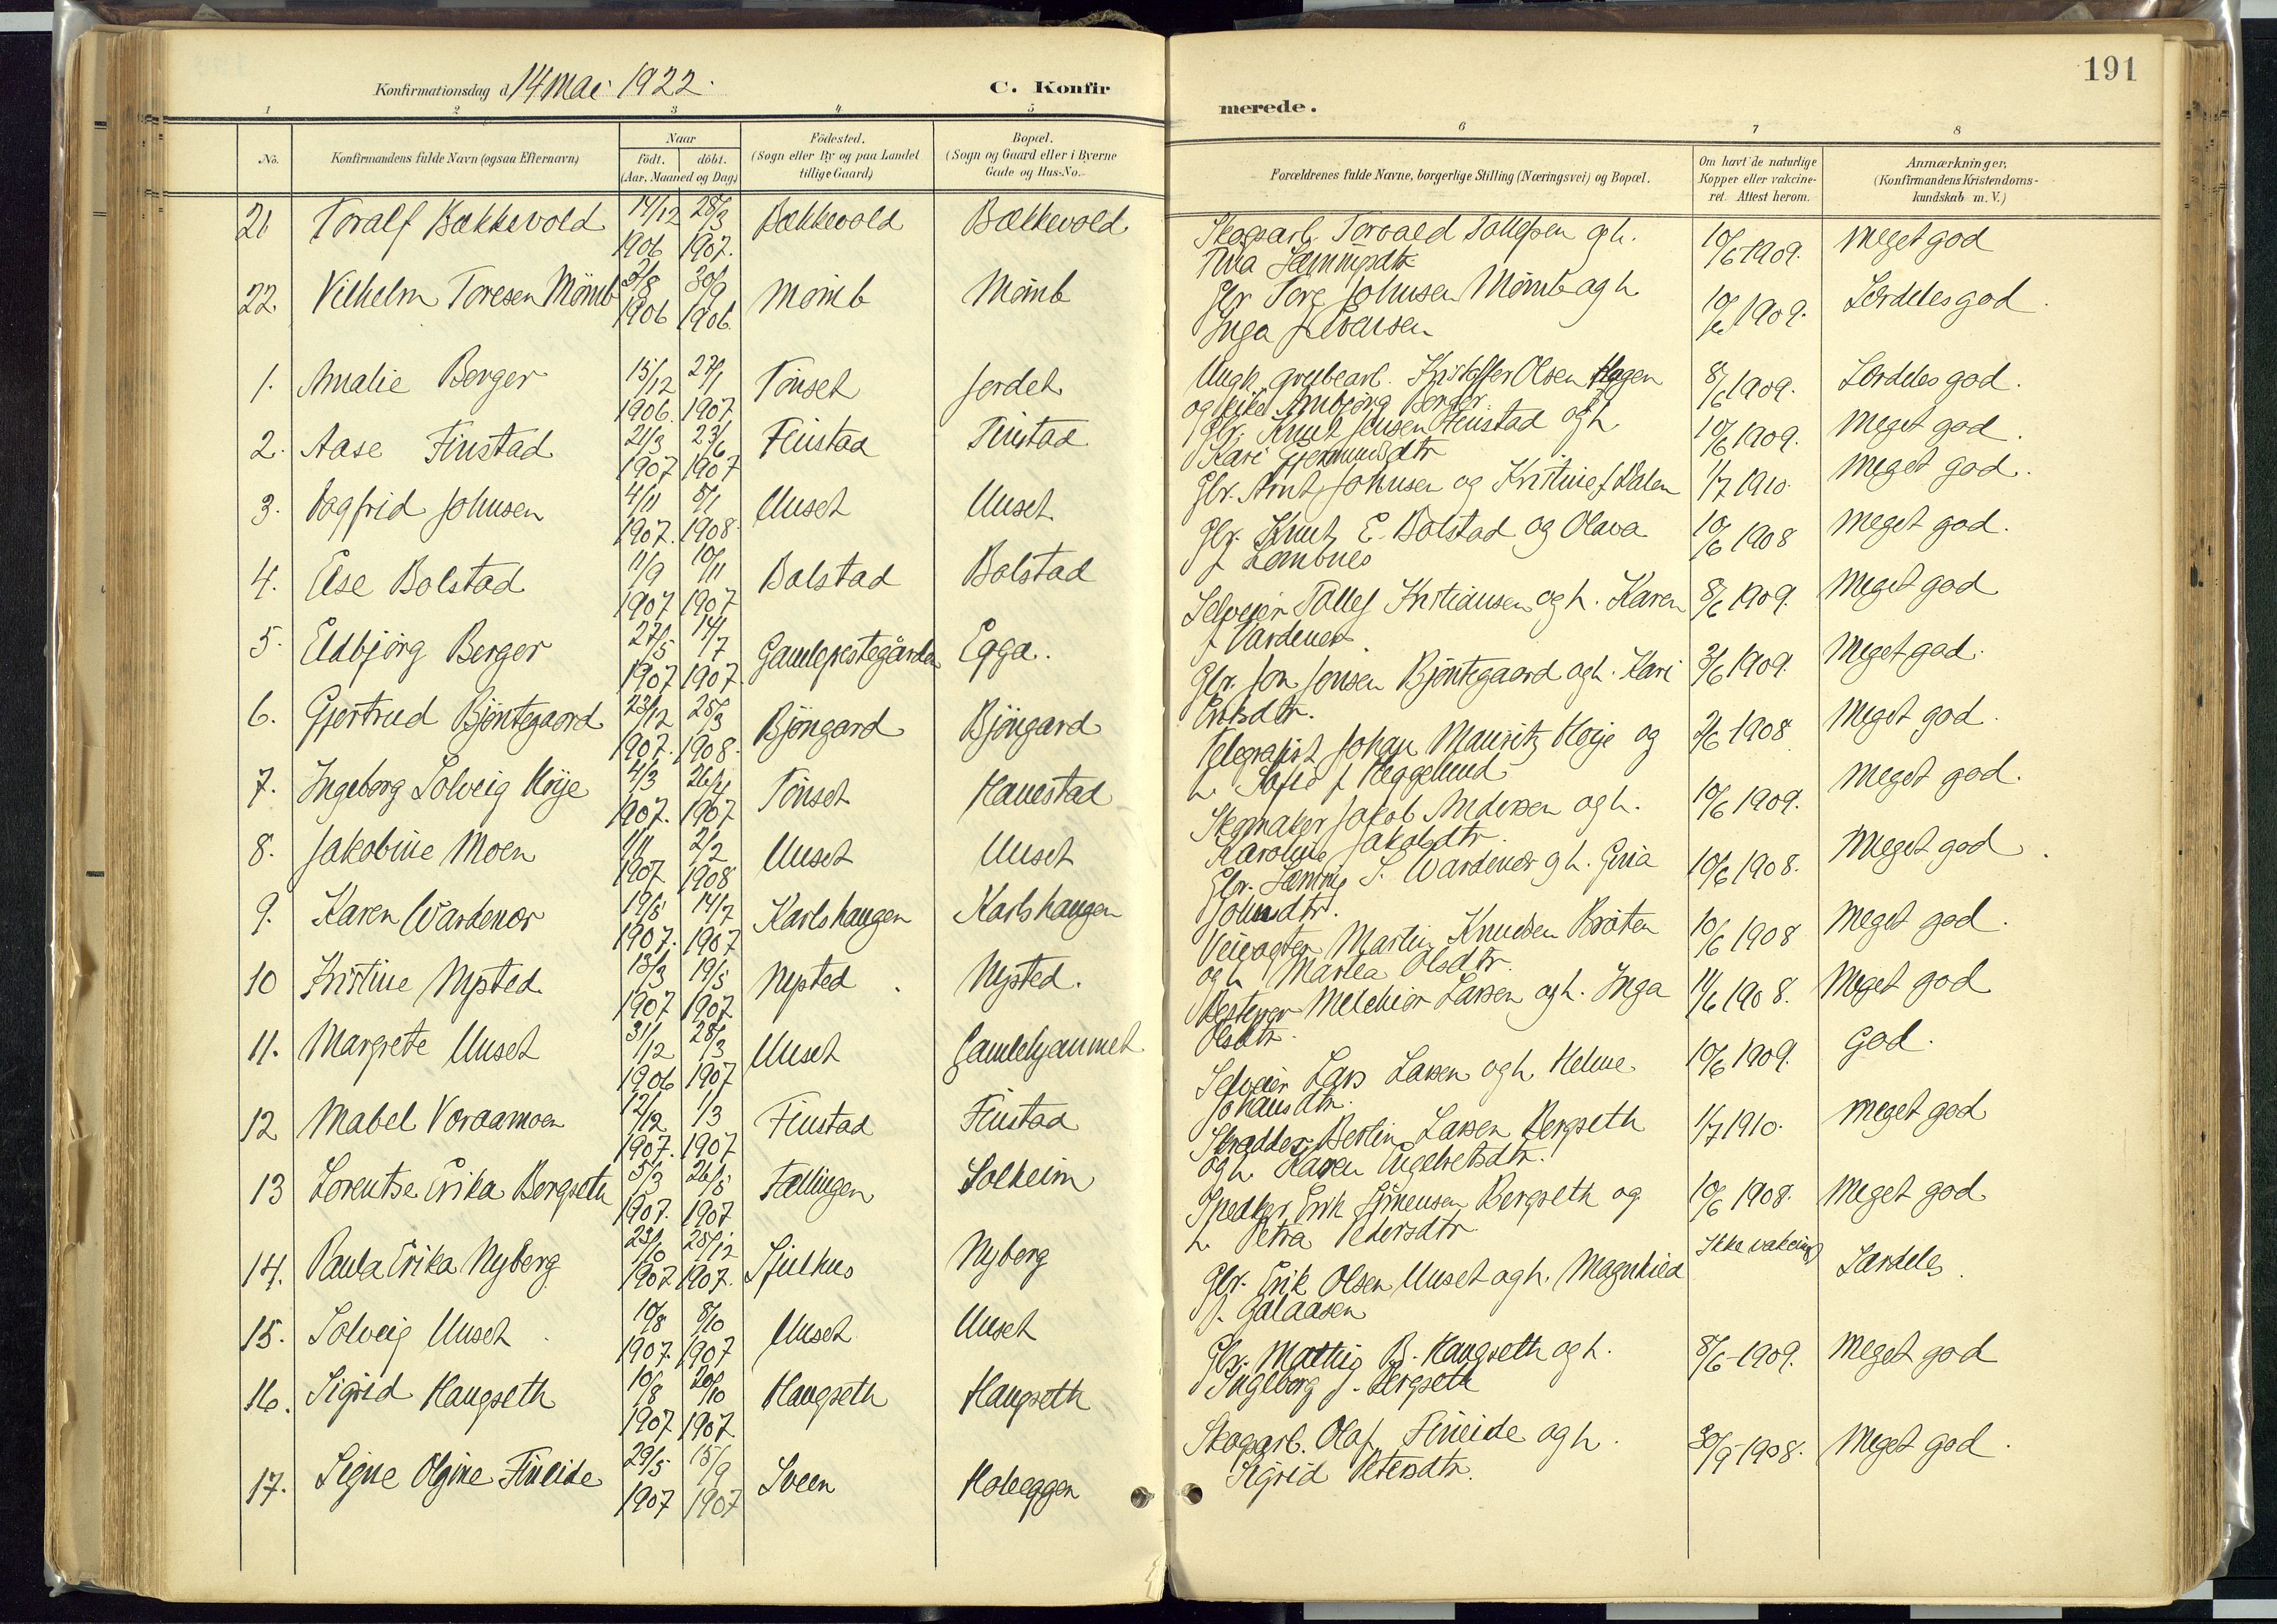 191
Konfirmationsdag d 14 mai 1922.
C. Konfirmerede.
1 2 3 4 5 6 7 8
No.
Konfirmandens fulde Navn (ogsaa Efternavn)
Naar
født. døbt.
(Aar, Maaned og Dag)
Födested.
(Sogn eller By og paa Landet
tillige Gaard)
Bopæl.
(Sogn og Gaard eller i Byerne
Gade og Hus-No.
Forældrenes fulde Navne, borgerlige Stilling (Næringsvei) og Bopæl.
Om havt de naturlige
Kopper eller vakcine-
ret. Attest herom.
Anmærkninger,
(Konfirmandens Kristendoms-
kundskab m. V.)
21 Toralf Bækkevold 14/12 1906 28/3 1907. Bækkevold Bækkevold Skogarb. Torvald Tollefsen og h. 10/6 1909. Meget god
22. Vilhelm Toresen Mömb 2/8 1906 30/9 1906 Mömb Mömb Gbr. Tore Johnsen Mömb og h. Inga f. Evensen 10/6 1909. Særdeles god
1. Amalie Berger 15/12 1906. 27/1 1907. Tönset Jordet Ungk. grubearb. Kristoffer Olsen Hagen og pike Anbjörg Berger 8/6 1909. Særdeles god.
2. Aase Finstad 21/3 1907 23/6 1907 Finstad Finstad Gbr. Knut Jensen Finstad og h. Kari 10/6 1909. Meget god.
3. Dagfrid Johnsen 4/11 1907. 8/1 1908. Uuset Uuset Gbr. Arnt Johnsen og Kristine f. Dalen 1/7 1910. Meget god.
4. Else Bolstad 11/9 1907 10/11 1907 Bolstad Bolstad Gbr. Knut E. Bolstad og Olava f. Lombnes 10/6 1908 Meget god.
5. Eldbjörg Berger 27/5 1907 14/7 1907. Gamleprestegården Egga. Selveier Tollef Kristiansen og h. Karen f. Vardenær 8/6 1909. Meget god
6. Gjertrud Bjöntegaard 23/12 1907. 25/3 1908. Bjöngard Bjöngard Gbr. Jon Jonsen Bjöntegaard og h. Kari Eriksdtr. 3/6 1909. Meget god.
7. Ingeborg Solveig Höije 4/3 1907. 26/4 1907 Tönset Hanestad Telegrafist Johan Mauritz Höije og h. Sofie f. Heggelund 2/6 1908 Meget god.
8. Jakobine Moen 1/11 1907 2/2 1908 Uuset Uuset Skomaker Jakob Andersen og h. Karoline Jakobsdtr. 10/6 1909. Meget god.
9. Karen Wardenær 19/5 1907. 14/7 1907 Karlshaugen Karlshaugen Gbr. Hemmig S. Wardenær og h. Gina Johnsdtr. 10/6 1908. Meget god.
10 Kristine Nysted 13/3 1907 19/5 1907 Nysted Nysted. Veivogter Martin Knudsen Bråten og h. Marthea Olsdtr. 10/6 1908 Meget god.
11. Margrete Uuset 31/12 1906 28/3 1907 Uuset Gamlehjemmet Melchior Larsen og h. Inga Olsdtr. 11/6 1908. Meget god
12 Mabel Voraamoen 12/12 1907. 1/3 1907 Finstad Finstad Selveier Lars Larsen og h. Helene Johansdtr. 10/6 1909. God.
13 Lorentse Erika Bergseth 5/3 1907. 26/5 1907 Fællingen Solheim Skrædder Berlin Larsen Bergseth og h. Karen Engebretsdtr. 1/7 1910. Meget god
14. Paula Erika Nyberg 23/10 1907 25/12 1907. Sjulhus Nyberg Snedker Erik Simensen Bergseth og h. Petra Pedersdtr. 10/6 1908. Meget god
15. Solveig Uuset 10/8 1907. 8/10 1907 Uuset Uuset Gbr. Erik Olsen Uuset og h. Magnhild f. Galaasen Ikke vakcin Særdeles
16. Sigrid Haugseth 10/8 1907 20/10 1907 Haugseth Haugseth Gbr. Mattis B. Haugseth og h. Ingeborg f. Bergseth 8/6 1909. Meget god
17. Signe Olgine Fineide 29/5 1907 15/9 1907 Sveen Holeggen Skogarb. Olaf Fineide og h. Sigrid Petersdtr. 30/9 1908. Meget god